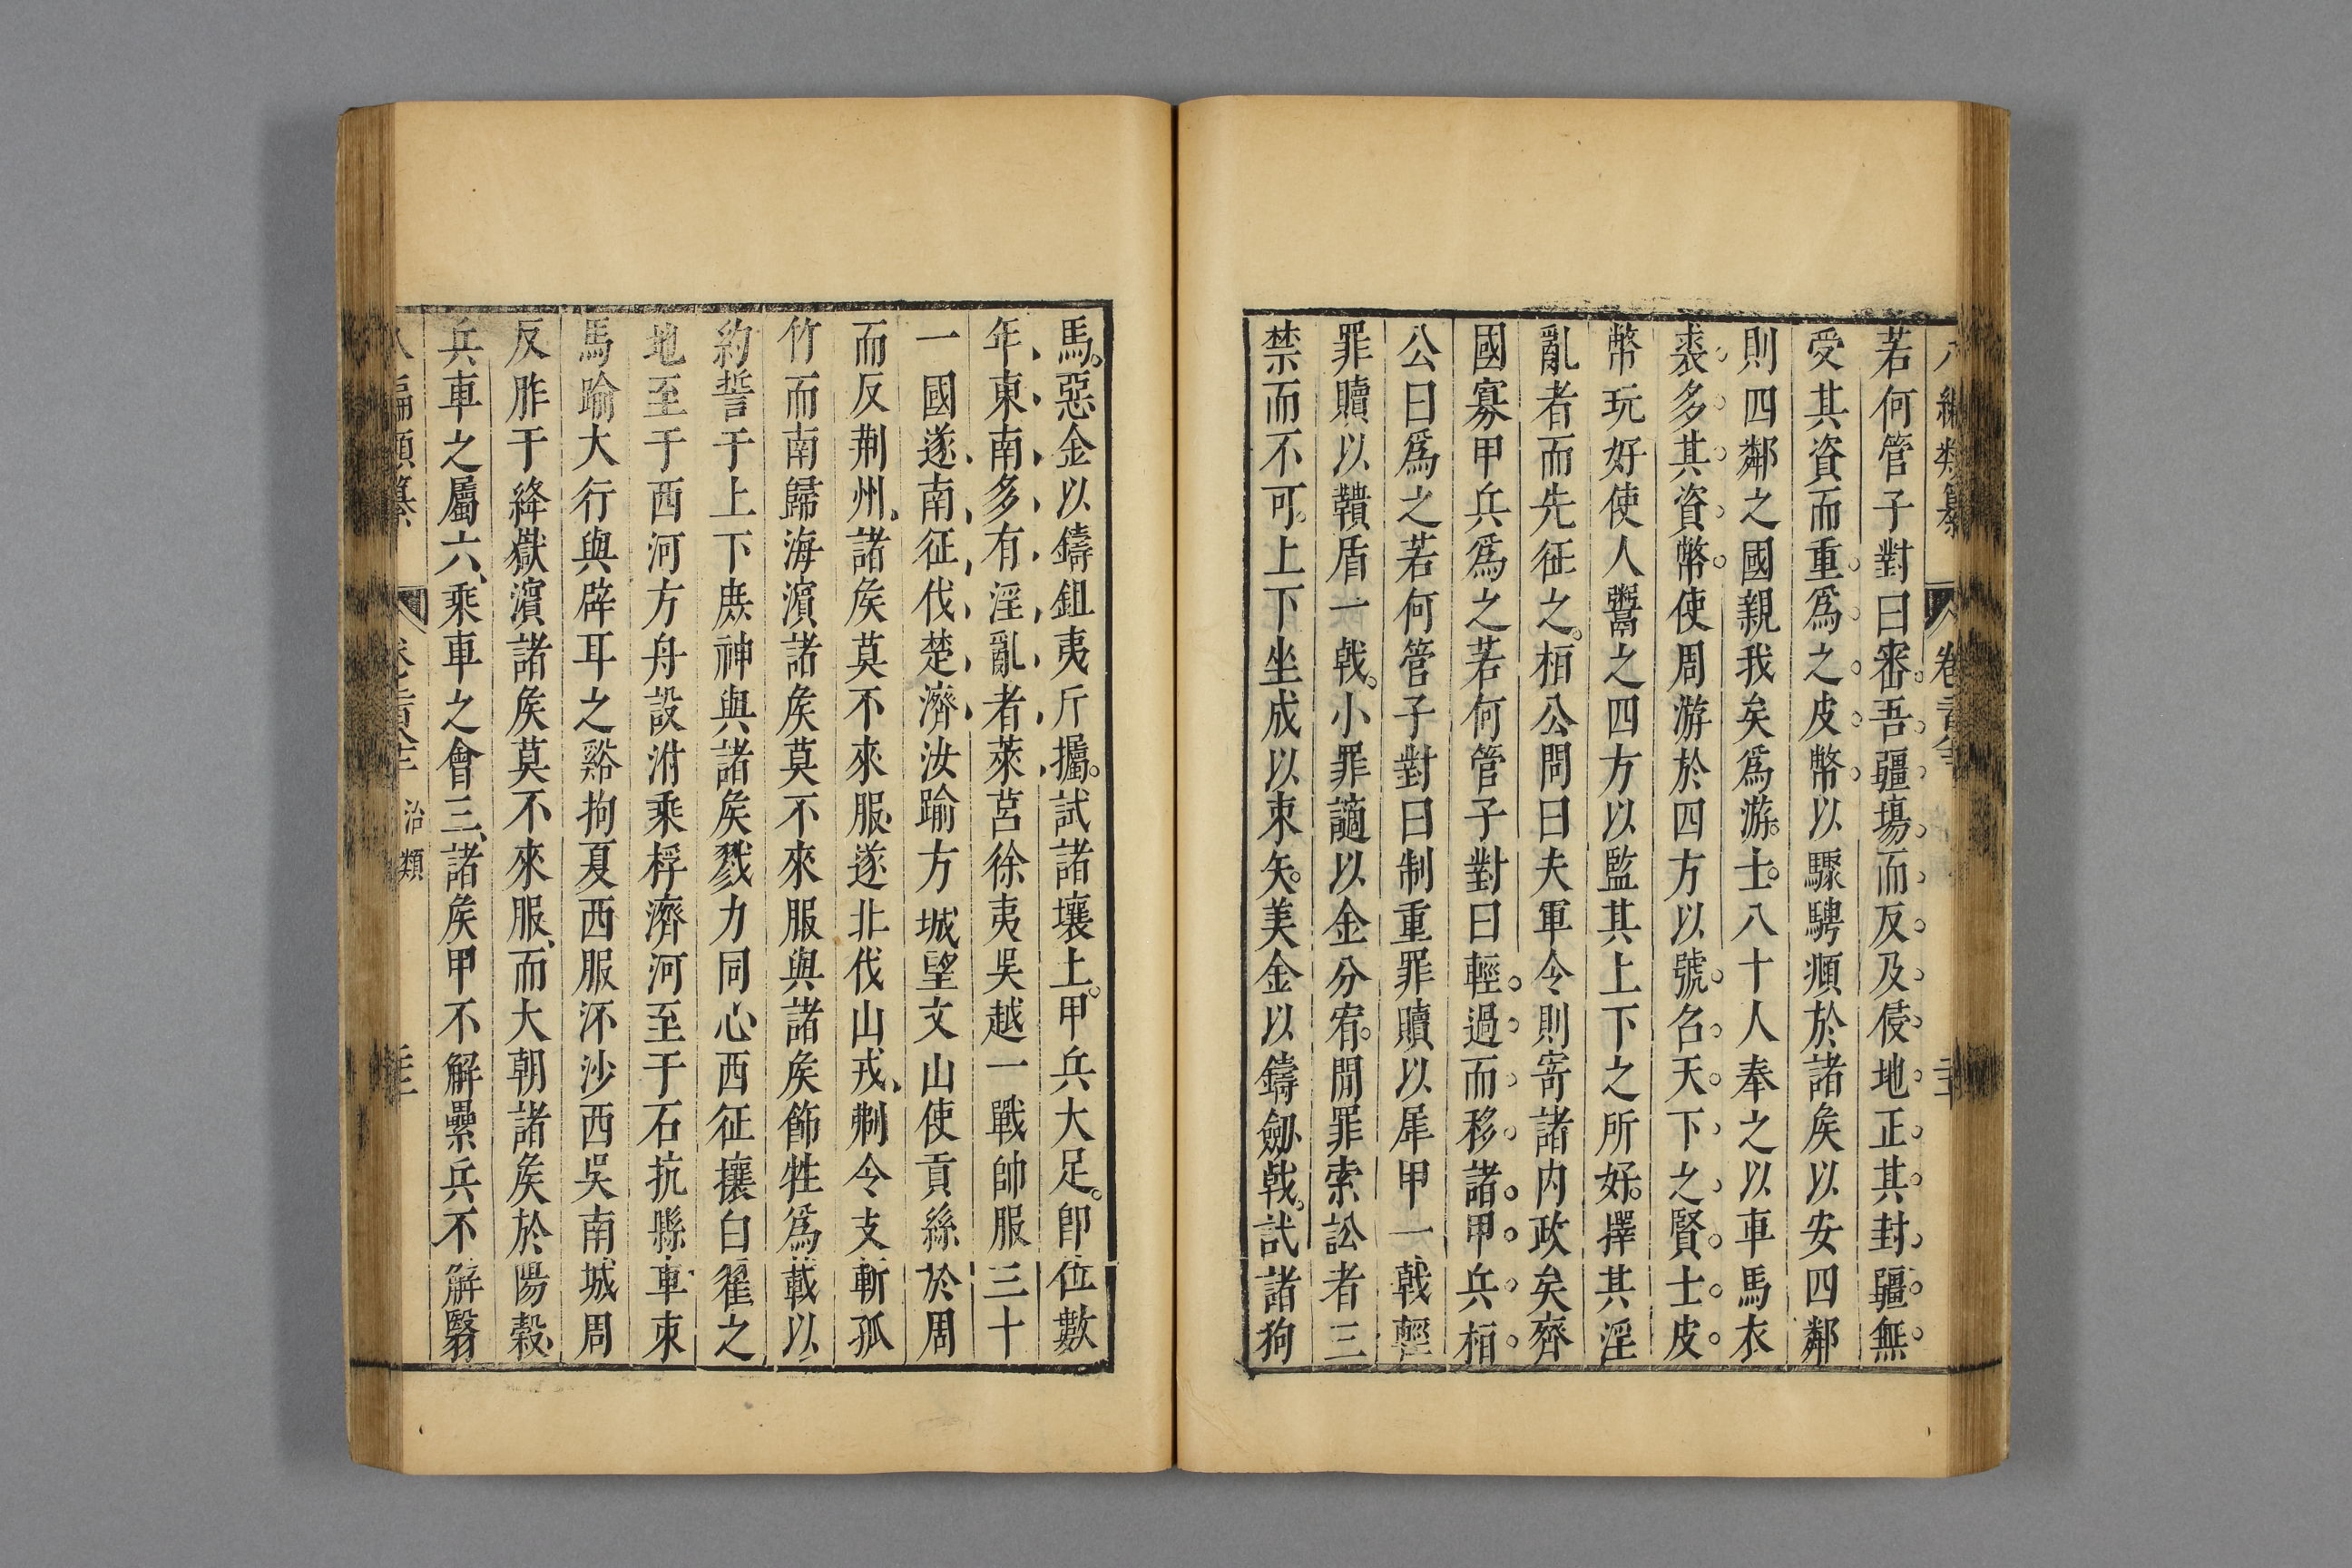 八編類纂 卷 三十
若何管子對曰審吾疆塲而反及侵地正其封疆無
受其資而重爲之皮幣以驟騁頫於諸矦以安四鄰
則四鄰之國親我矣爲游士八十人奉之以車馬衣
裘多其資幣使周游於四方以號名天下之賢士皮
幣玩好使人鬻之四方以監其上下之所好擇其淫
亂者而先征之桓公問曰夫軍令則寄諸内政矣齊
國寡甲兵爲之若何管子對曰輕過而移諸甲兵桓
公曰爲之若何管子對曰制重罪贖以犀甲一戟輕
罪贖以鞼盾一戟小罪讁以金分宥閒罪索訟者三
禁而不可上下坐成以束矢美金以鑄劔戟試諸狗
馬惡金以鑄鉏夷斤欘試諸壤土甲兵大足卽位數
年東南多有淫亂者萊莒徐夷吳越一戰帥服三十
一國遂南征伐楚濟汝踰方城望文山使貢絲於周
而反荆州諸矦莫不來服遂北伐山戎刜令支斬孤
竹而南歸海濵諸矦莫不來服與諸矦飾牲爲載以
約誓于上下庶神與諸矦戮力同心西征攘白翟之
地至于西河方舟設泭乘桴濟河至于石抗縣車束
馬踰大行與辟耳之谿拘夏西服沠沙西吳南城周
反胙于絳嶽濵諸矦莫不來服而大朝諸矦於陽榖
兵車之屬六乘車之會三諸矦甲不解纍兵不解翳
八編類纂 治類